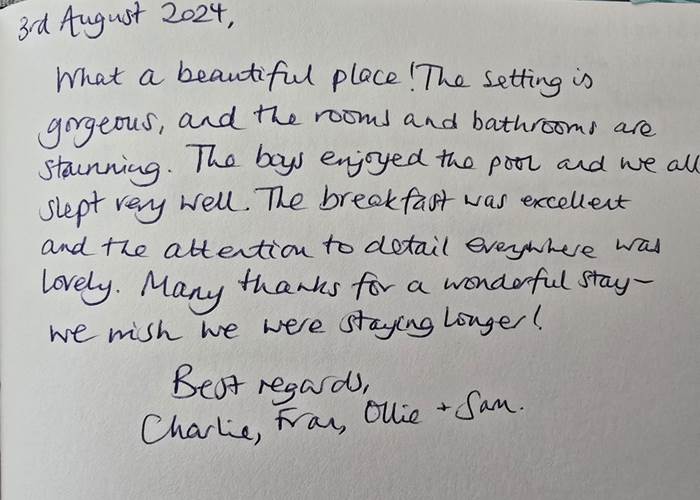 3rd August 2024,
What a beautiful place! The setting is
gorgeous, and the rooms and bathrooms are
stunning. The boys enjoyed the pool and we all
slept very well. The breakfast was excellent
and the attention to detail everywhere was
lovely. Many thanks for a wonderful stay—
we wish we were staying longer!
Best regards,
Charlie, Fran, Ollie + Sam.